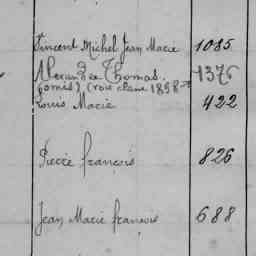 Vincent Michel Jean Marie 1085
Alexandre Thomas 1376
(omis) (voir classe 1898)
Louis Marie 422
Pierre françois 826
Jean Marie françois 688